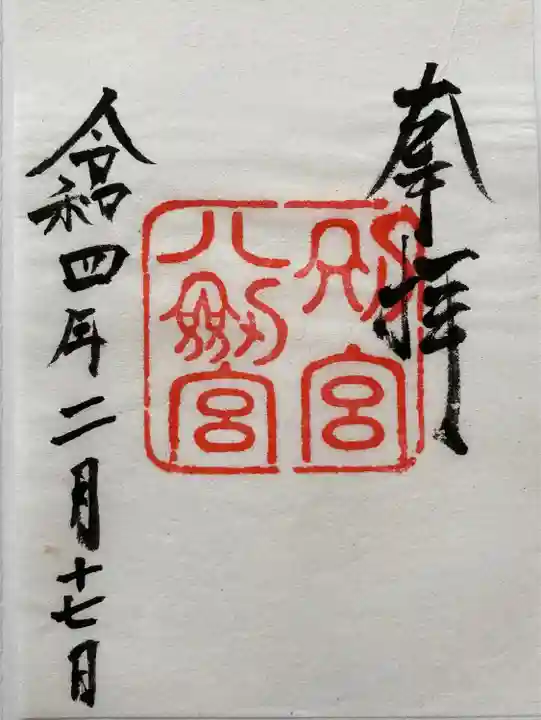 奉拝
別宮
八剱宮
令和四年二月十七日